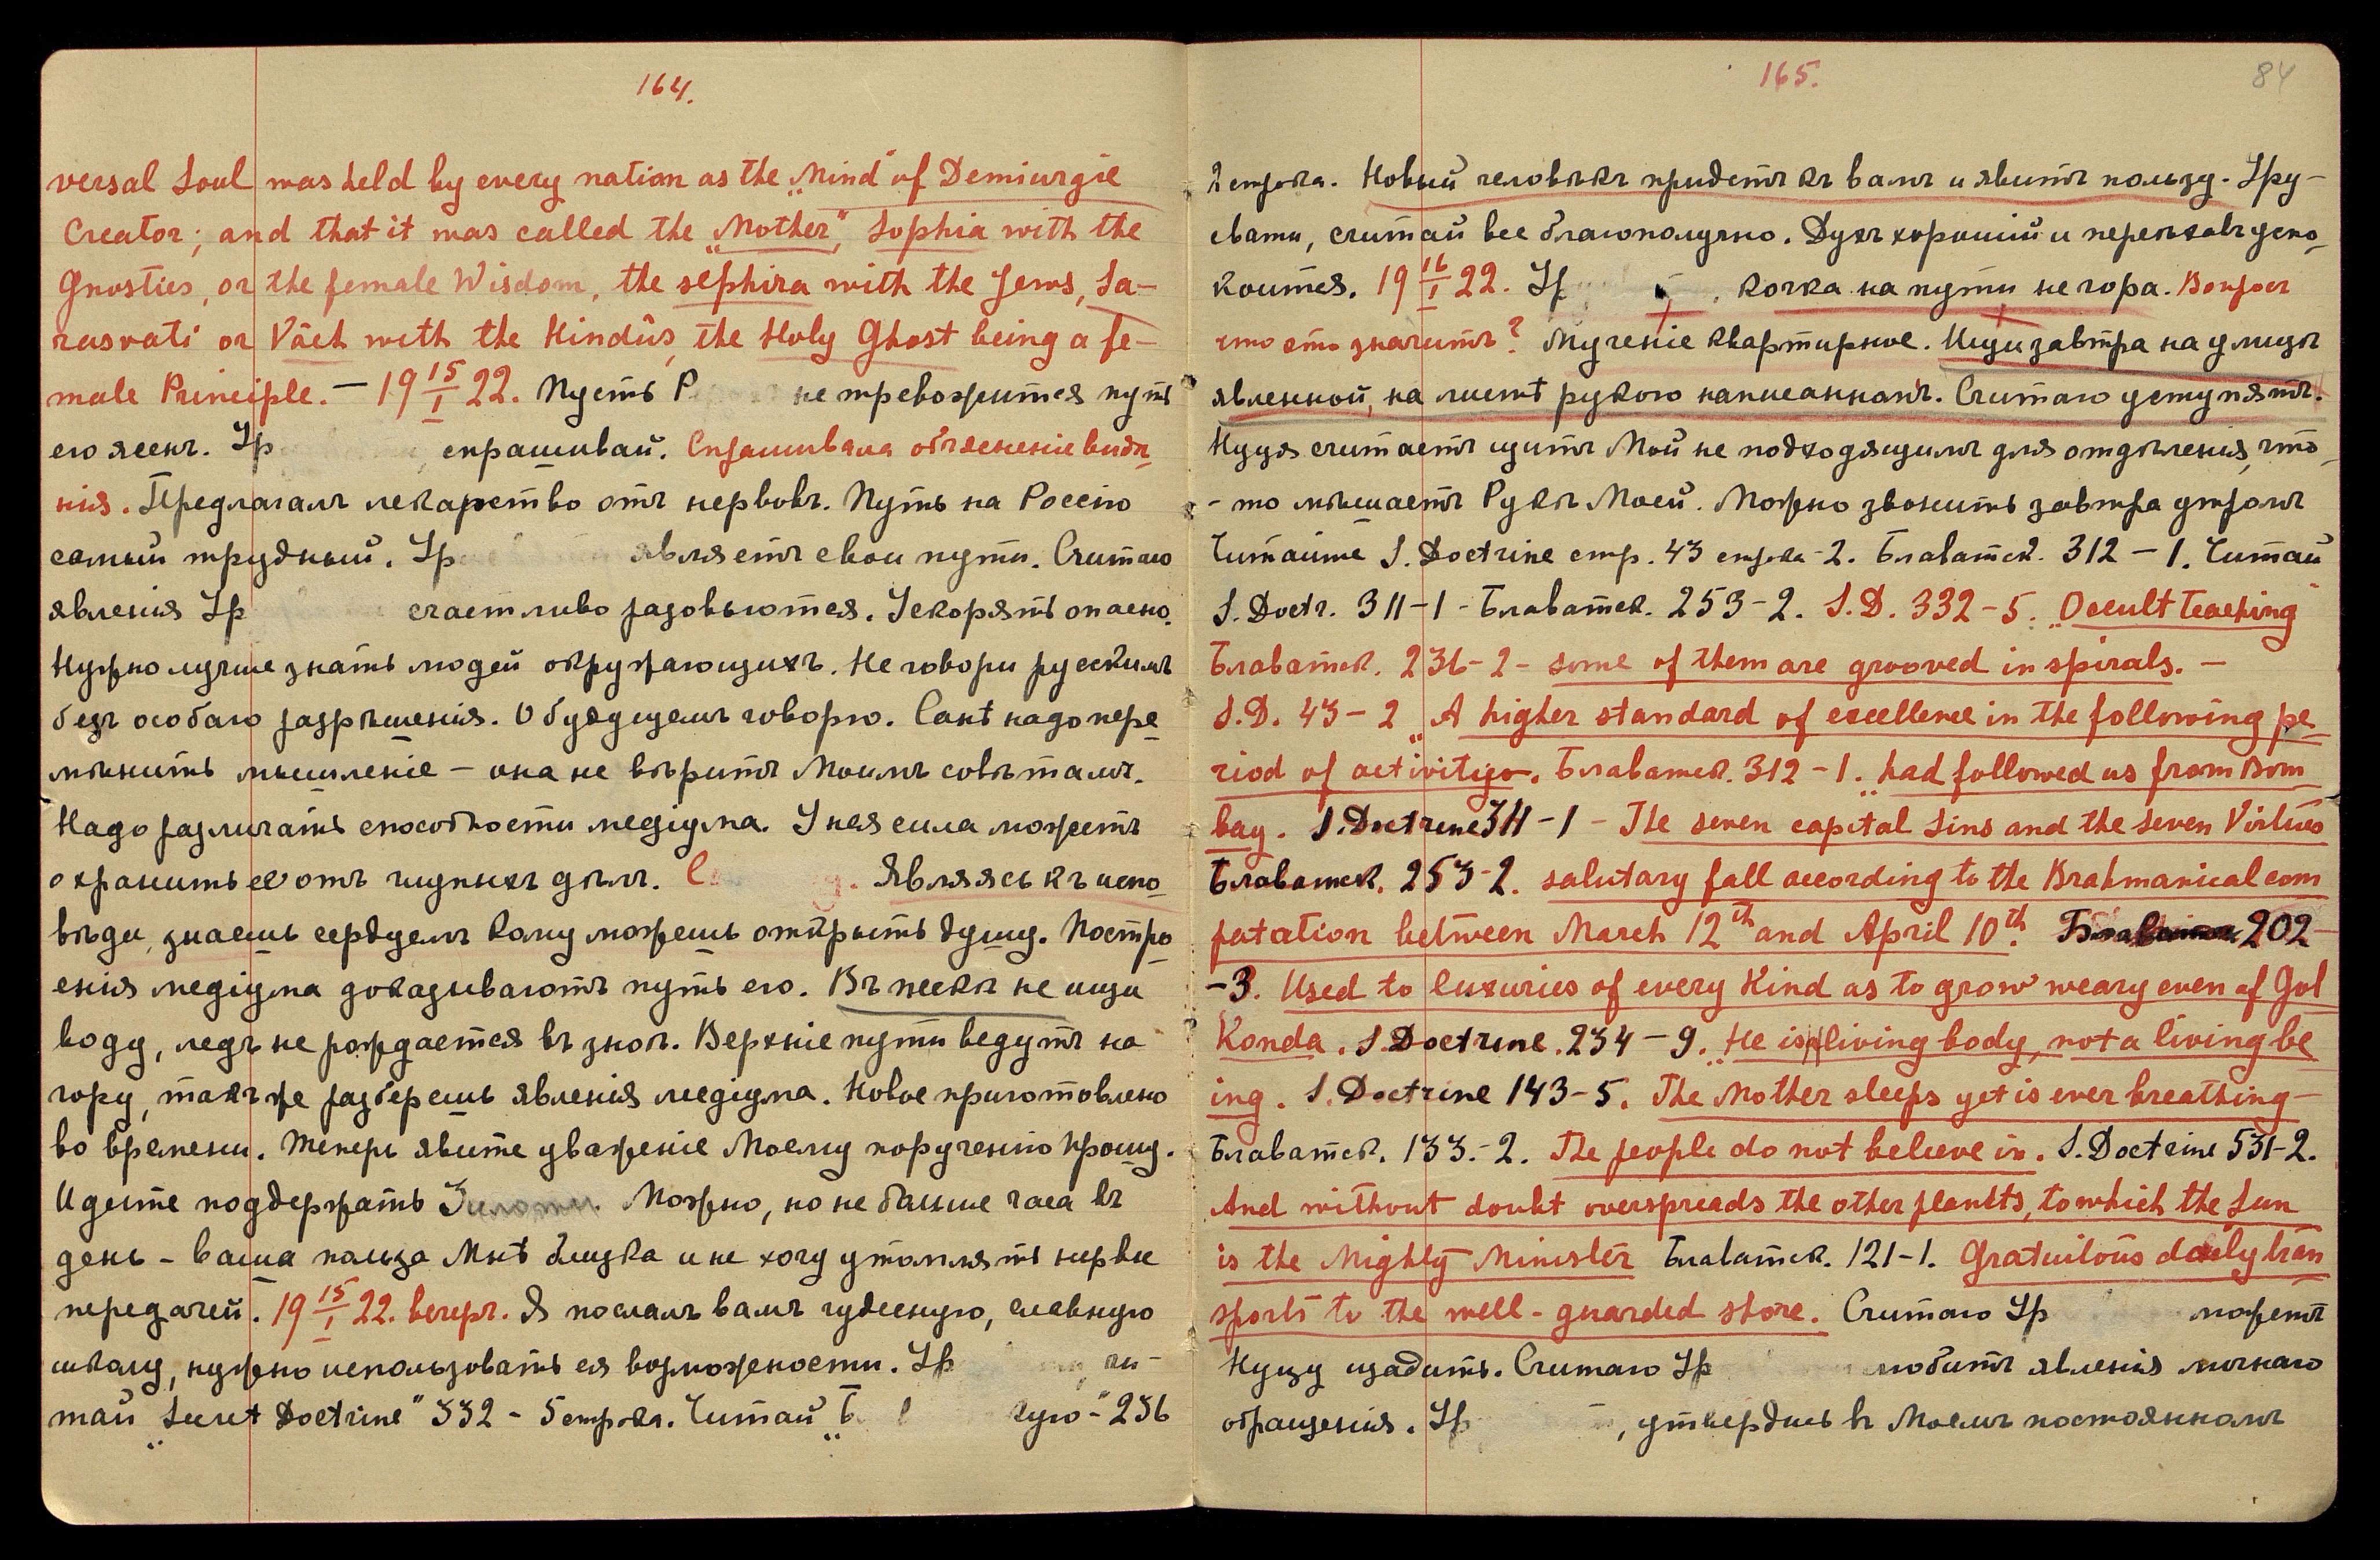 164.
versal Soul was held by every nation as the „Mind" of Demiurgie
Creator; and that it was called the „Mother", Sophia with the
Gnostics, or the female Wisdom, the sephira with the Jews, Sa-
rasvati or Vâch with the Hindûs, the Holy Ghost being a fe-
male Principle. — 19 15/I 22. Пусть Р не тревожится путь
его ясенъ. Ур спрашивай. Спрашивала объясненіе видѣ-
нія. Предлагалъ лекарство отъ нервовъ. Путь на Россію
самый трудный. Ур являетъ свои пути. Считаю
явленія Ур счастливо разовьются. Ускорять опасно.
Нужно лучше знать людей окружающихъ. Не говори русскимъ
безъ особаго разрѣшенія. О будущемъ говорю. Санѣ надо пере-
мѣнить мышленіе — она не вѣритъ Моимъ совѣтамъ.
Надо различать способности медіума. У нея сила можетъ
охранить ее отъ глупыхъ дѣлъ. Являясь къ испо-
вѣди, знаешь сердцемъ кому можешь открыть душу. Постро-
енія медіума доказываютъ путь его. Въ пескѣ не ищи
воду, ледъ не рождается въ зноѣ. Верхніе пути ведутъ на
гору, такъ же разберешь явленія медіума. Новое приготовлено
во времени. Теперь явите уваженіе Моему порученію прошу.
Идите поддержать Можно, но не больше часа въ
день — ваша польза Мнѣ близка и не хочу утомлять нервы
передачей. 19 15/I 22. вечеръ. Я послалъ вамъ чудесную, славную
школу, нужно использовать ея возможности. Ур чи-
тай „Secret Doctrine" 332 - 5 строка. Читай „Б скую" - 236
165.
84
2 строка. Новый человѣкъ придетъ къ вамъ и явитъ пользу. Ур-
свати, считай все благополучно. Духъ хорошій и переѣхавъ успо-
коится. 19 16/I 22. Ур кочка на пути не гора. Вопросъ
что это значитъ? Мученіе квартирное. Ищи завтра на улицѣ
явленной, на листѣ рукою написанномъ. Считаю уступятъ.
Нуця считаетъ щитъ Мой не подходящимъ для отдѣленія, что-
-то мѣшаетъ Рукѣ Моей. Можно звонить завтра утромъ
Читайте S. Doctrine стр. 43 строка - 2. Блаватск. 312 — 1. Читай
S. Doctr. 311 - 1 - Блаватск. 253 - 2. S.D. 332 - 5. „Occult teaching"
Блаватск. 236 - 2 - some of them are grooved in spirals. —
S.D. 43 - 2 „A higher standard of excellence in the following pe-
riod of activity". Блаватск. 312 - 1. „had followed us from Bom
bay. S. Doctrine 311 - 1 - The seven capital Sins and the seven Virtues
Блаватск. 253 - 2. salutary fall according to the Brahmanical com
putation between March 12th and April 10th. Блаватск 202
-3. Used to luxuries of every Kind as to grow weary even of Gol
Konda. S. Doctrine. 234 — 9. „He is a living body, not a living be
ing. S. Doctrine 143 - 5. The Mother sleeps yet is ever breathing —
Блаватск. 133. - 2. The people do not believe in. S. Doctrine 531 - 2.
And without doubt overspreads the other planets, to which the Sun
is the Mighty Minister Блаватск. 121 - 1. Gratuitous daily tran
sports to the well - guarded store. Считаю Ур можетъ
Нуцу щадить. Считаю Ур любитъ явленія личнаго
обращенія. Ур , утвердись въ Моемъ постоянномъ